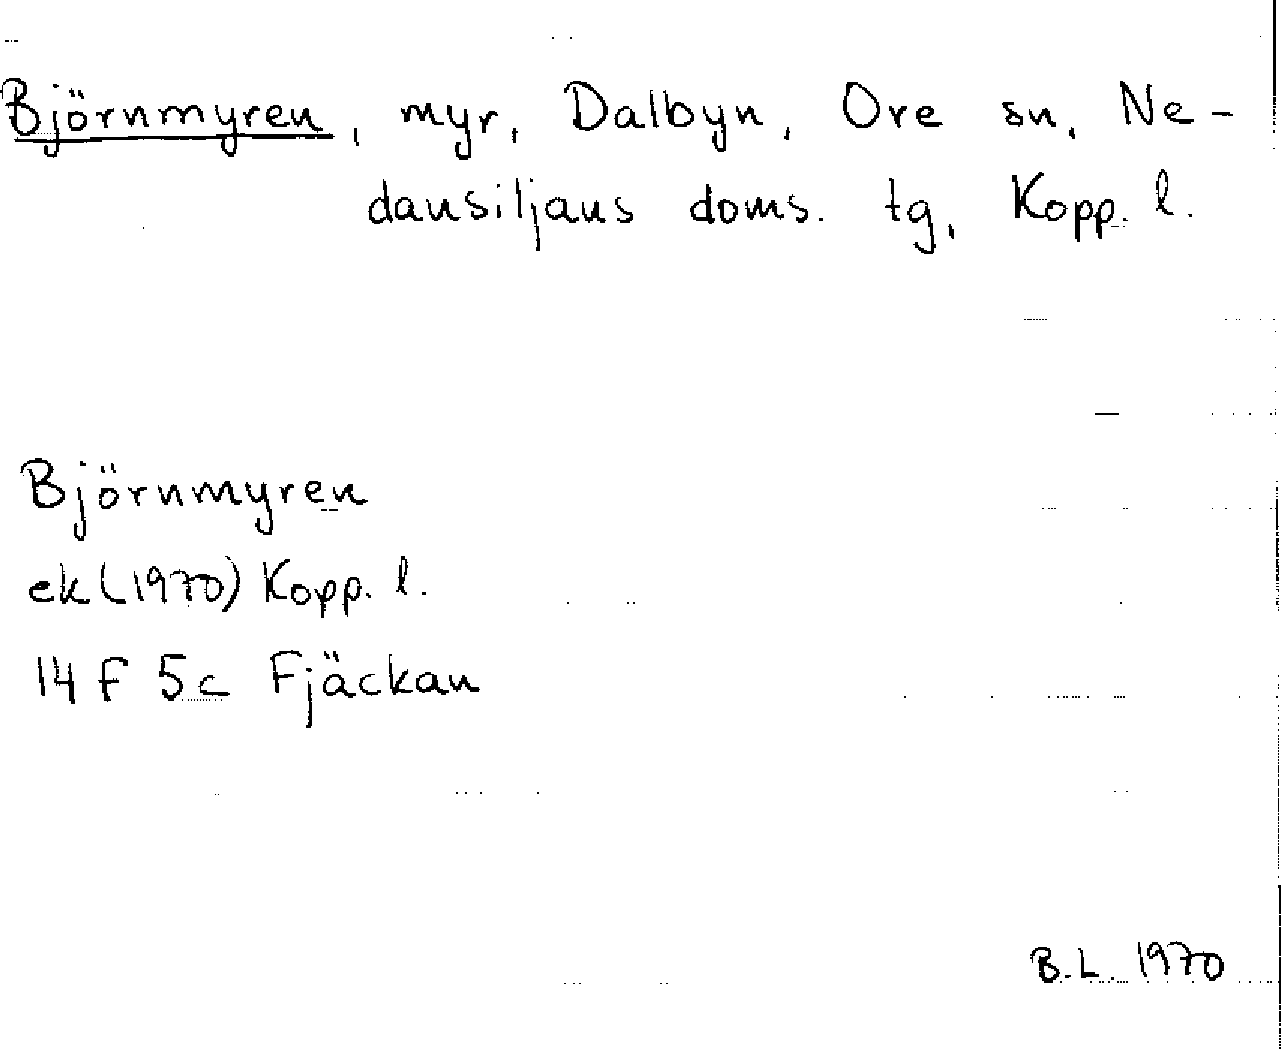 Björnmyren, myr, Dalbyn, Ore sn, Ne-
dansiljans doms. tg, Kopp. l.
Björnmyren
ek (1970) Kopp. l.
14 F 5c Fjäckan
B.L. 1970